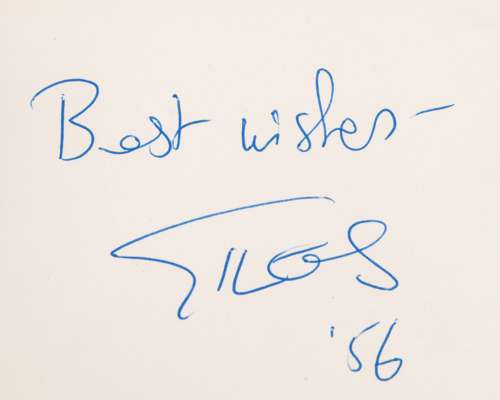 Best wishes -
GILES
'56